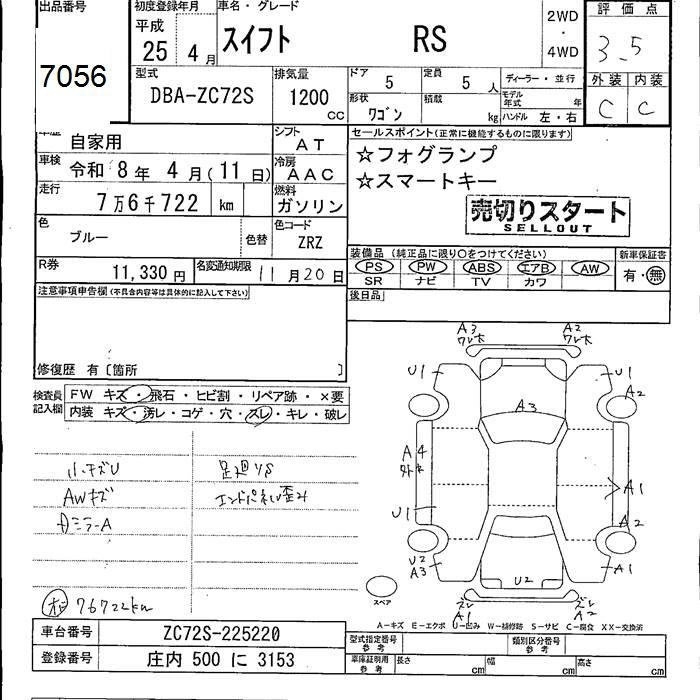 出品番号
7056
初度登録年月
平成
25 4 月
車名・グレード
スイフト RS
2WD
・
4WD
評価点
3.5
外装 内装
C C
型式
DBA-ZC72S
排気量
1200
CC
ドア
5
定員
5 人
形状
ワゴン
積載
kg
ディーラー・並行
モデル
年式 年
ハンドル 左・右
自家用
シフト
AT
車検
令和 8年 4月(11日)
冷房
AAC
走行
7万6千722 km
燃料
ガソリン
色
ブルー
色替
色コード
ZRZ
R券
11,330 円
名変通知期限
11 月 20 日
セールスポイント(正常に機能するものに限ります)
☆フォグランプ
☆スマートキー
売切りスタート
SELLOUT
装備品 (純正品に限り○をつけてください)
PS PW ABS エアB AW
SR ナビ TV カワ
新車保証書
有・無
後日品
注意事項申告欄(不具合内容等は具体的に記入して下さい)
修復歴 有〔箇所 〕
検査員
記入欄
FW キズ・飛石・ヒビ割・リペア跡・×要
内装 キズ・汚レ・コゲ・穴・スレ・キレ・破レ
小キズU
AWキズ
足廻りS
エンドパネル歪み
76722km
A3
A2
U1
U1
A2
A3
A4
U1
A1
A2
U2
A3
U2
A1
A1
A2
スペア
A-キズ E-エクボ U-凹み W-補修跡 S-サビ C-腐食 XX-交換済
車台番号
ZC72S-225220
登録番号
庄内 500 に 3153
型式指定番号
参考
類別区分番号
参考
車庫証明用
参考
長さ
cm
幅
cm
高さ
cm